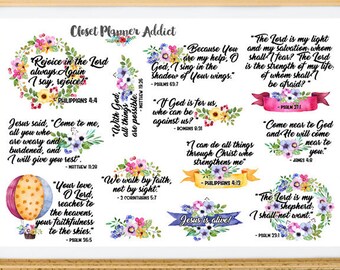 Closet Planner Addict
Rejoice in the Lord
always. Again
I say, rejoice!
PHILIPPIANS 4:4
With God
all things
are possible.
MATTHEW 19:26
Because You
are my help, O
God, I sing in
the
shadow of Your wings."
- PSALMS 63:7
"The Lord is my light
and my salvation whom
shall I fear? The Lord
is the strength of my
life, of whom shall
I be afraid?
- PSALM 27:1
Jesus said, "Come to me,
all you who
are weary and
burdened, and
I will give you rest."
- MATTHEW 11:28
"If God is for us,
who can be
against us?
- ROMANS 8:31
"I can do all things
through Christ who
strengthens me"
- PHILIPPIANS 4:13
Come near to God
and He will come
near to
you.
- JAMES 4:8
"Your love,
O Lord,
reaches to
the heavens,
your faithfulness
to the skies."
- PSALM 36:5
"We walk by faith,
not by sight."
- 2 CORINTHIANS 5:7
Jesus is alive!
"The Lord is
my
shepherd;
I shall not
want."
- PSALM 23:1